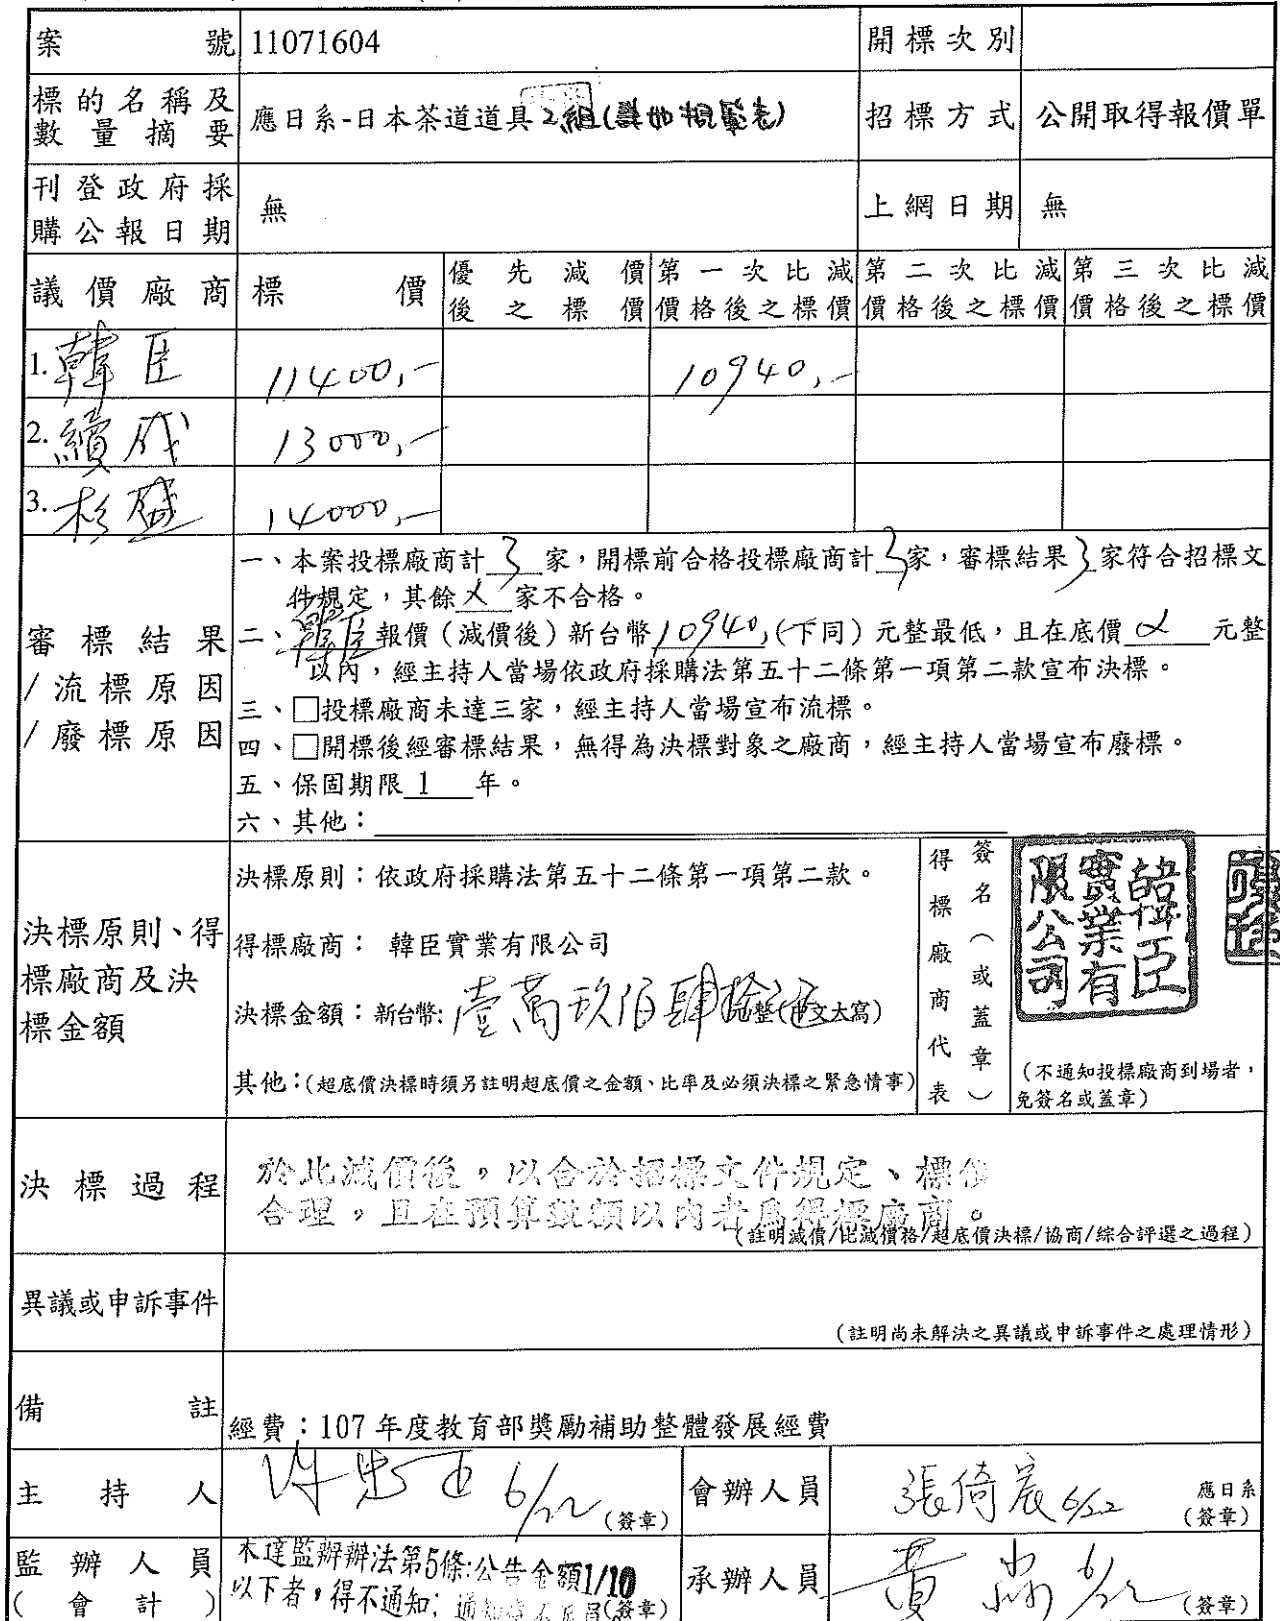 案號 11071604 開標次別
標的名稱及數量摘要 應日系-日本茶道道具2組(詳如規範表) 招標方式 公開取得報價單
刊登政府採購公報日期 無 上網日期 無
議價廠商 標價 優先減價後之標價 第一次比減價格後之標價 第二次比減價格後之標價 第三次比減價格後之標價
1.韓臣 11400,- 10940,-
2.續成 13000,-
3.杉盛 14000,-
審標結果/流標原因/廢標原因
一、本案投標廠商計 3 家，開標前合格投標廠商計 3 家，審標結果 3 家符合招標文
件規定，其餘 × 家不合格。
二、韓臣報價（減價後）新台幣10940,(下同）元整最低，且在底價 元整
以內，經主持人當場依政府採購法第五十二條第一項第二款宣布決標。
三、□投標廠商未達三家，經主持人當場宣布流標。
四、□開標後經審標結果，無得為決標對象之廠商，經主持人當場宣布廢標。
五、保固期限 1 年。
六、其他：
決標原則、得標廠商及決標金額
決標原則：依政府採購法第五十二條第一項第二款。
得標廠商： 韓臣實業有限公司
決標金額：新台幣:壹萬玖佰肆拾元整(中文大寫)
其他：(超底價決標時須另註明超底價之金額、比率及必須決標之緊急情事)
得標廠商代表 簽名（或蓋章）
韓臣實業有限公司
（不通知投標廠商到場者，
免簽名或蓋章）
決標過程
於比減價後，以合於招標文件規定、標價
合理，且在預算數額以內者為得標廠商。
(註明減價/比減價格/超底價決標/協商/綜合評選之過程)
異議或申訴事件
(註明尚未解決之異議或申訴事件之處理情形)
備註 經費：107 年度教育部獎勵補助整體發展經費
主持人 6/22 (簽章) 會辦人員 張倚宸 6/22 應日系
(簽章)
監辦人員(會計)
未達監辦辦法第5條:公告金額1/10
以下者，得不通知; (簽章)
承辦人員 黃 6/22 (簽章)